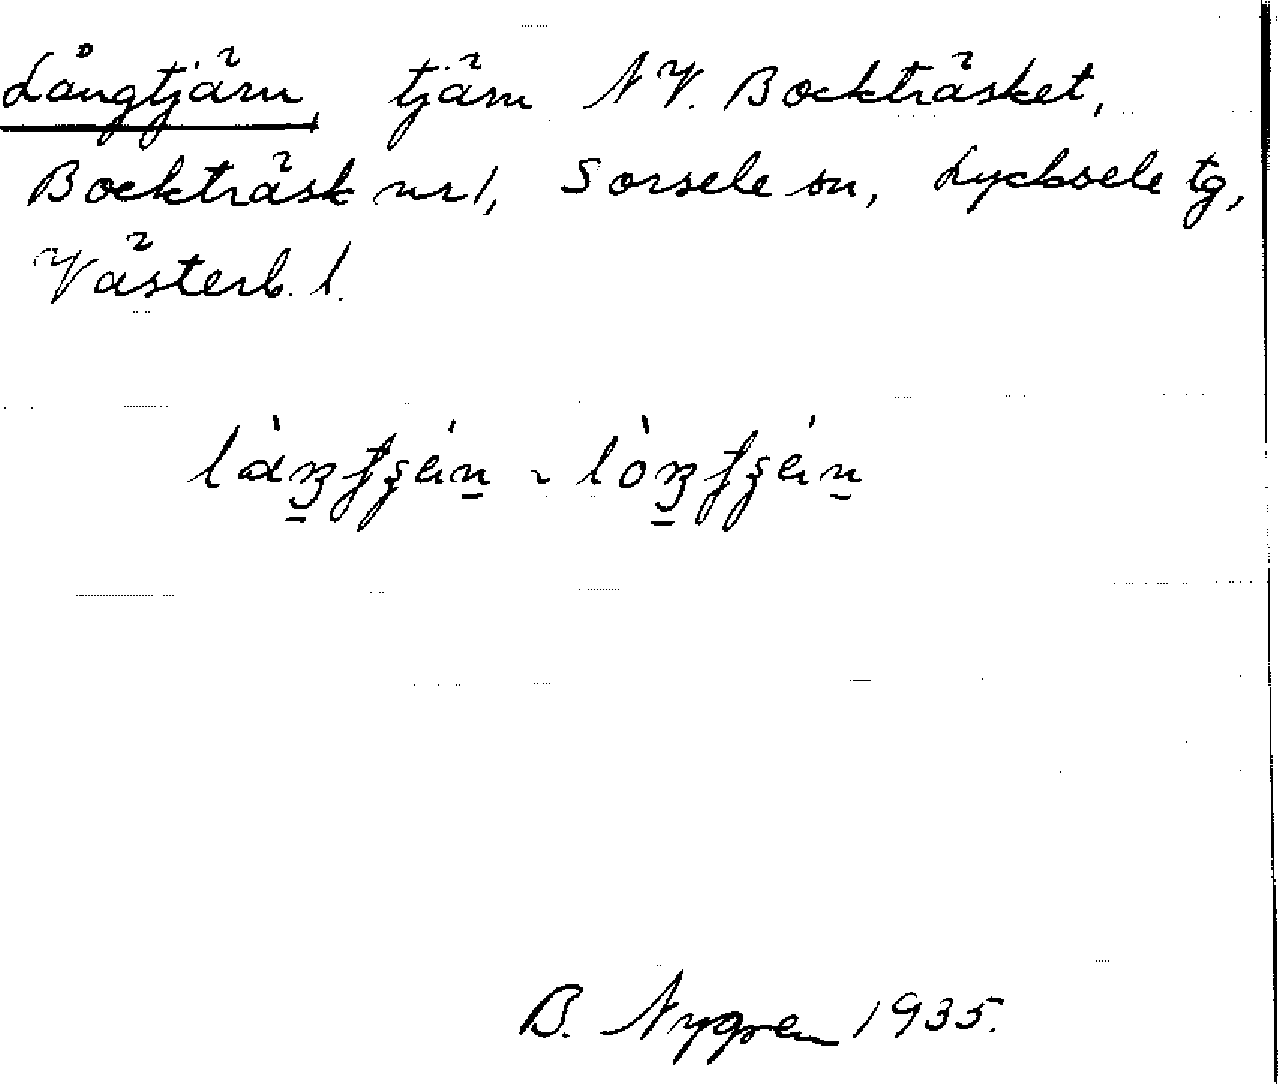 Långtjärn, tjärn NV. Bockträsket,
Bockträsk nr 1, Sorsele sn, Lycksele tg,
Västerb. l.
B. Nygren 1935.